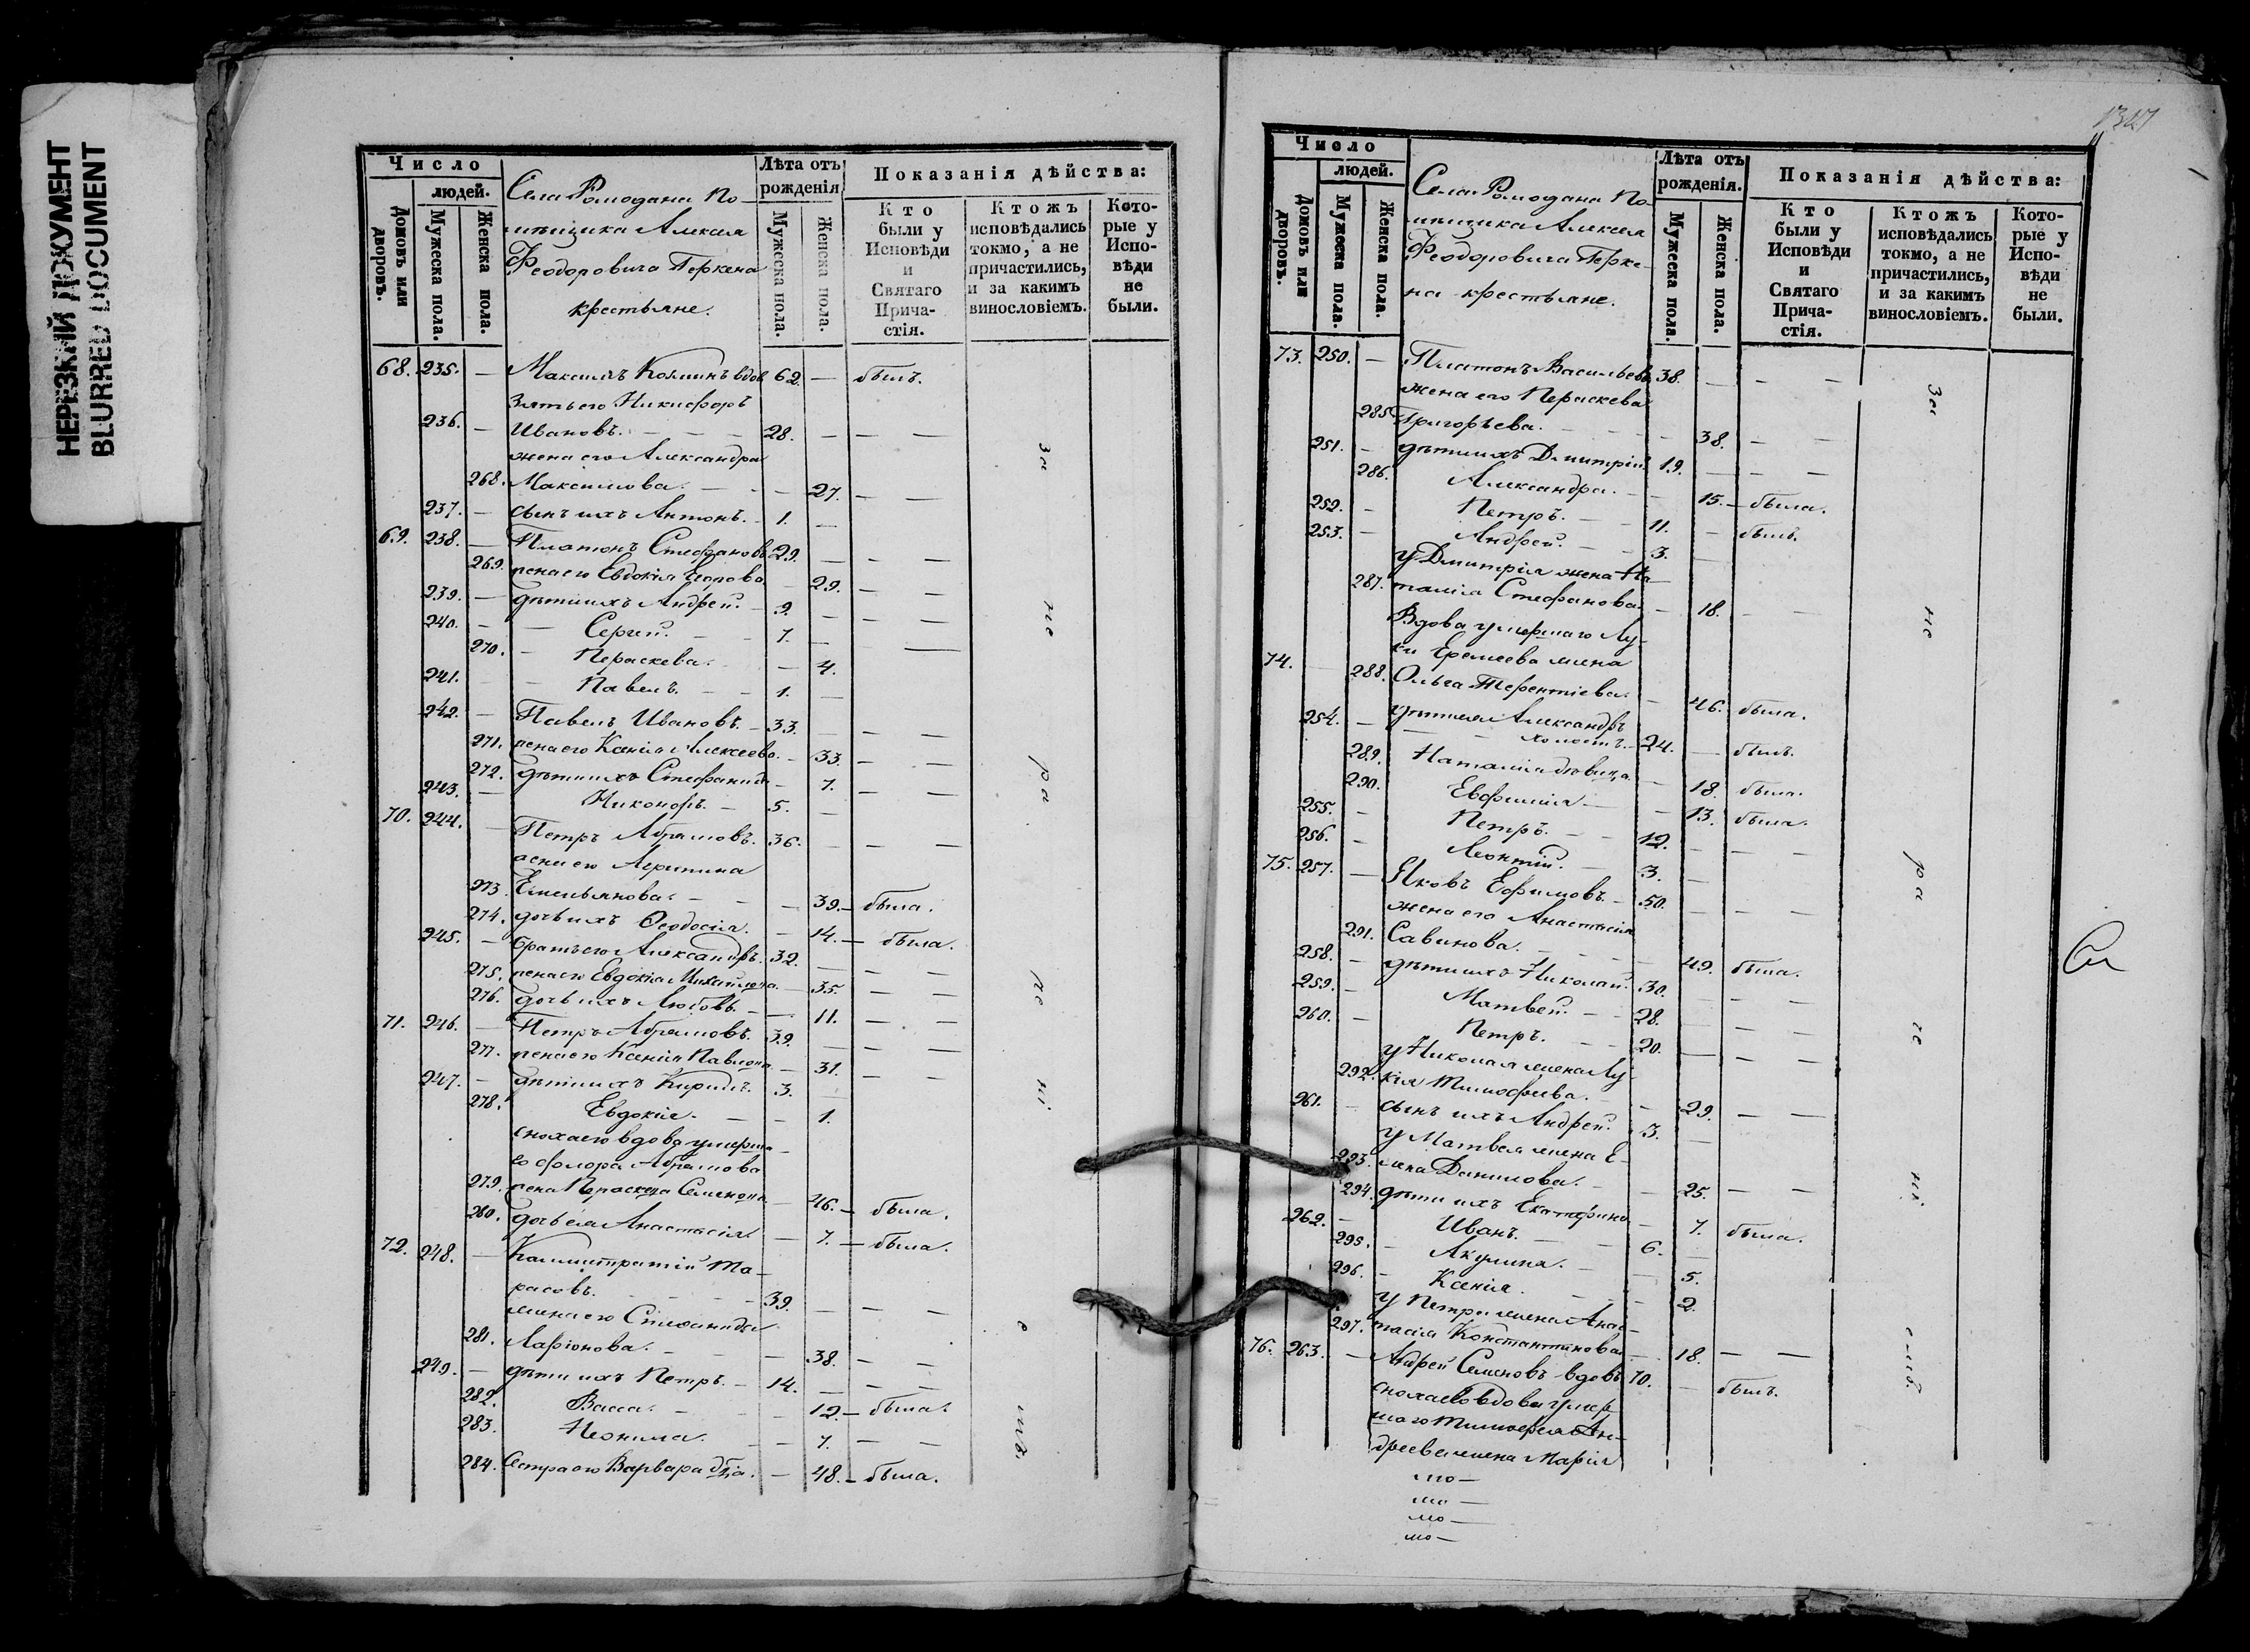 НЕРЕЗКИЙ ДОКУМЕНТ
BLURRED DOCUMENT
Число
людей.
Домовъ или дворовъ.
Мужеска пола.
Женска пола.
Села Ромодана По-
мѣщика Алексея
Феодоровича Перкена
крестьяне.
Лѣта отъ
рожденія
Мужеска пола.
Женска пола.
Показанія дѣйства:
Кто были у Исповѣди и Святаго Прича-стія.
Ктожъ исповѣдались токмо, а не причастились, и за какимъ винословіемъ.
Кото-рые у Испо-вѣди не были.
68. 235. — Максимъ Козминъ вдов. 62. — былъ.
Зять его Никифоръ
236. — Ивановъ. 28. — — —
жена его Александра
268. Максимова. — 27. — —
237. — сынъ ихъ Антонъ. 1. —
69. 238. — Платонъ Стефановъ 29. — — —
269. жена его Евдокія Егорова — 29. — —
239. — дѣти ихъ Андрей. 9. — — —
240. — Сергей. 7. — — —
270. — Пераскева. — 4.
241. — Павелъ. 1. —
242. — Павелъ Ивановъ. 33. — — —
271. жена его Ксенія Алексеева. — 33. — —
272. дѣти ихъ Стефанида — 7. — —
243. — Никоноръ. 5. —
70. 244. — Петръ Абрамовъ. 36. — — —
жена его Агрипина
273. Емельянова. — 39. — была.
274. дочь ихъ Феодосія. — 14. — была.
245. — братъ его Александръ. 32. — — —
275. жена его Евдокія Михайлова. — 35. — —
276. дочь ихъ Любовь. — 11. — —
71. 246. — Петръ Абрамовъ. 39. — — —
277. жена его Ксенія Павлова — 31. — —
247. — дѣти ихъ Кирилъ. 3. —
278. Евдокія. — 1.
сноха его вдова умерша-
го Флора Абрамова
279. жена Пераскева Семенова — 46. — была.
280. дочь ея Анастасія — 7. — была.
72. 248. — Каллистратій Та-
расовъ. 39. — — —
жена его Стефанида
281. Ларіонова. — 38. — —
249. — дѣти ихъ Петръ. 14. — — —
282. Васса. — 12. — была.
283. Неонила. — 7. — —
284. Сестра его Варвара — 48. — была.
За не ра
1347
Число
людей.
Домовъ или дворовъ.
Мужеска пола.
Женска пола.
Села Ромодана По-
мѣщика Алексея
Феодоровича Перке-
на крестьяне.
Лѣта отъ
рожденія.
Мужеска пола.
Женска пола.
Показанія дѣйства:
Кто были у Исповѣди и Святаго Прича-стія.
Ктожъ исповѣдались токмо, а не причастились, и за какимъ винословіемъ.
Кото-рые у Испо-вѣди не были.
73. 250. — Платонъ Васильевъ 38. — — —
жена его Пераскева
285. Григорьева. — 38. — —
251. — дѣти ихъ Дмитрій. 19. — — —
286. Александра. — 15. — была.
252. — Петръ. 11. — былъ.
253. — Андрей. 3. —
у Дмитрія жена На-
287. талія Стефанова — 18. — —
Вдова умершаго Лу-
ки Еремеева жена
74. — 288. Ольга Терентіева — 46. была.
254. — дѣти ея Александръ
холостъ. 24. — былъ.
289. Наталія дѣвица — 18. была.
290. Евфимія — 13. была.
255. — Петръ. 12. — — —
256. — Леонтій. 3. —
75. 257. — Яковъ Ефимовъ. 50. — — —
жена его Анастасія
291. Савинова. — 49. была.
258. — дѣти ихъ Николай. 30. — — —
259. — Матвей. 28. — — —
260. — Петръ. 20. — — —
у Николая жена Лу-
292. кія Тимофеева. — 29. — —
261. — сынъ ихъ Андрей. 3. —
у Матвея жена Е-
293. лена Данилова. — 25. — —
294. дѣти ихъ Екатерина — 7. была.
262. — Иванъ. 6. —
295. — Акулина. — 5.
296. — Ксенія. — 2.
у Петра жена Анас-
297. тасія Константинова — 18. — —
76. 263. — Андрей Семеновъ вдовъ 70. — былъ.
сноха его вдова умер
шаго Тимофея Ан-
дреева жена Марія
За не ра